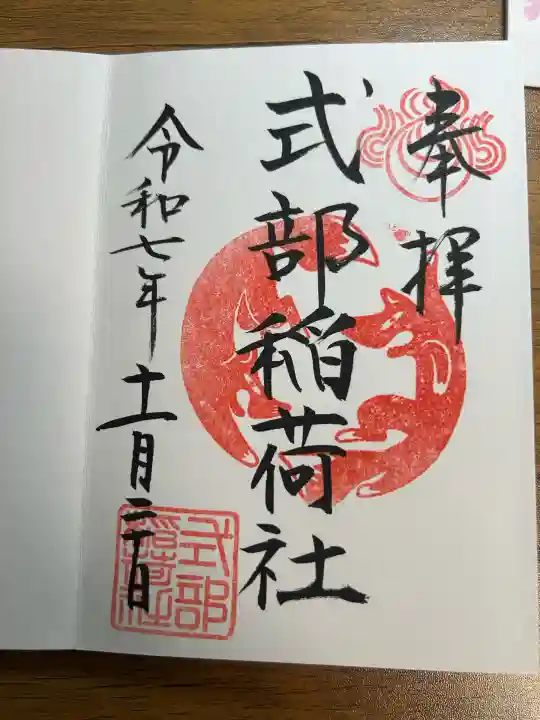 奉拝
式部稲荷社
令和七年十一月二十日
式部
稲荷社